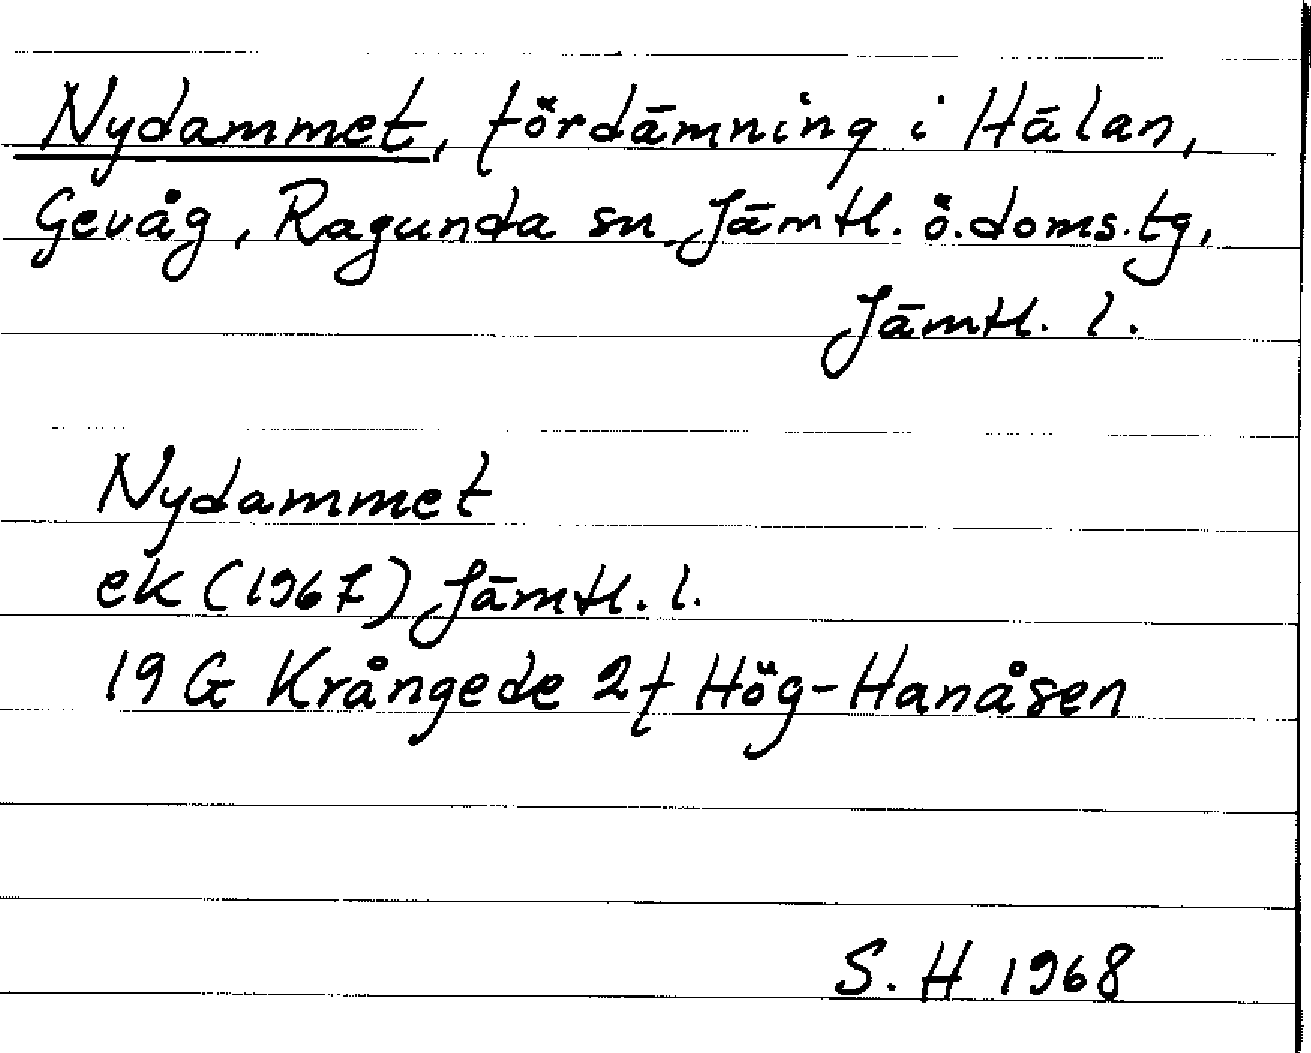 Nydammet, fördämning i Hålan,
Gevåg, Ragunda sn Jämtl. ö. doms. tg,
Jämtl. l.
Nydammet
ek (1967) Jämtl. l.
19 G Krångede 2f Hög-Hanåsen
S. H 1968